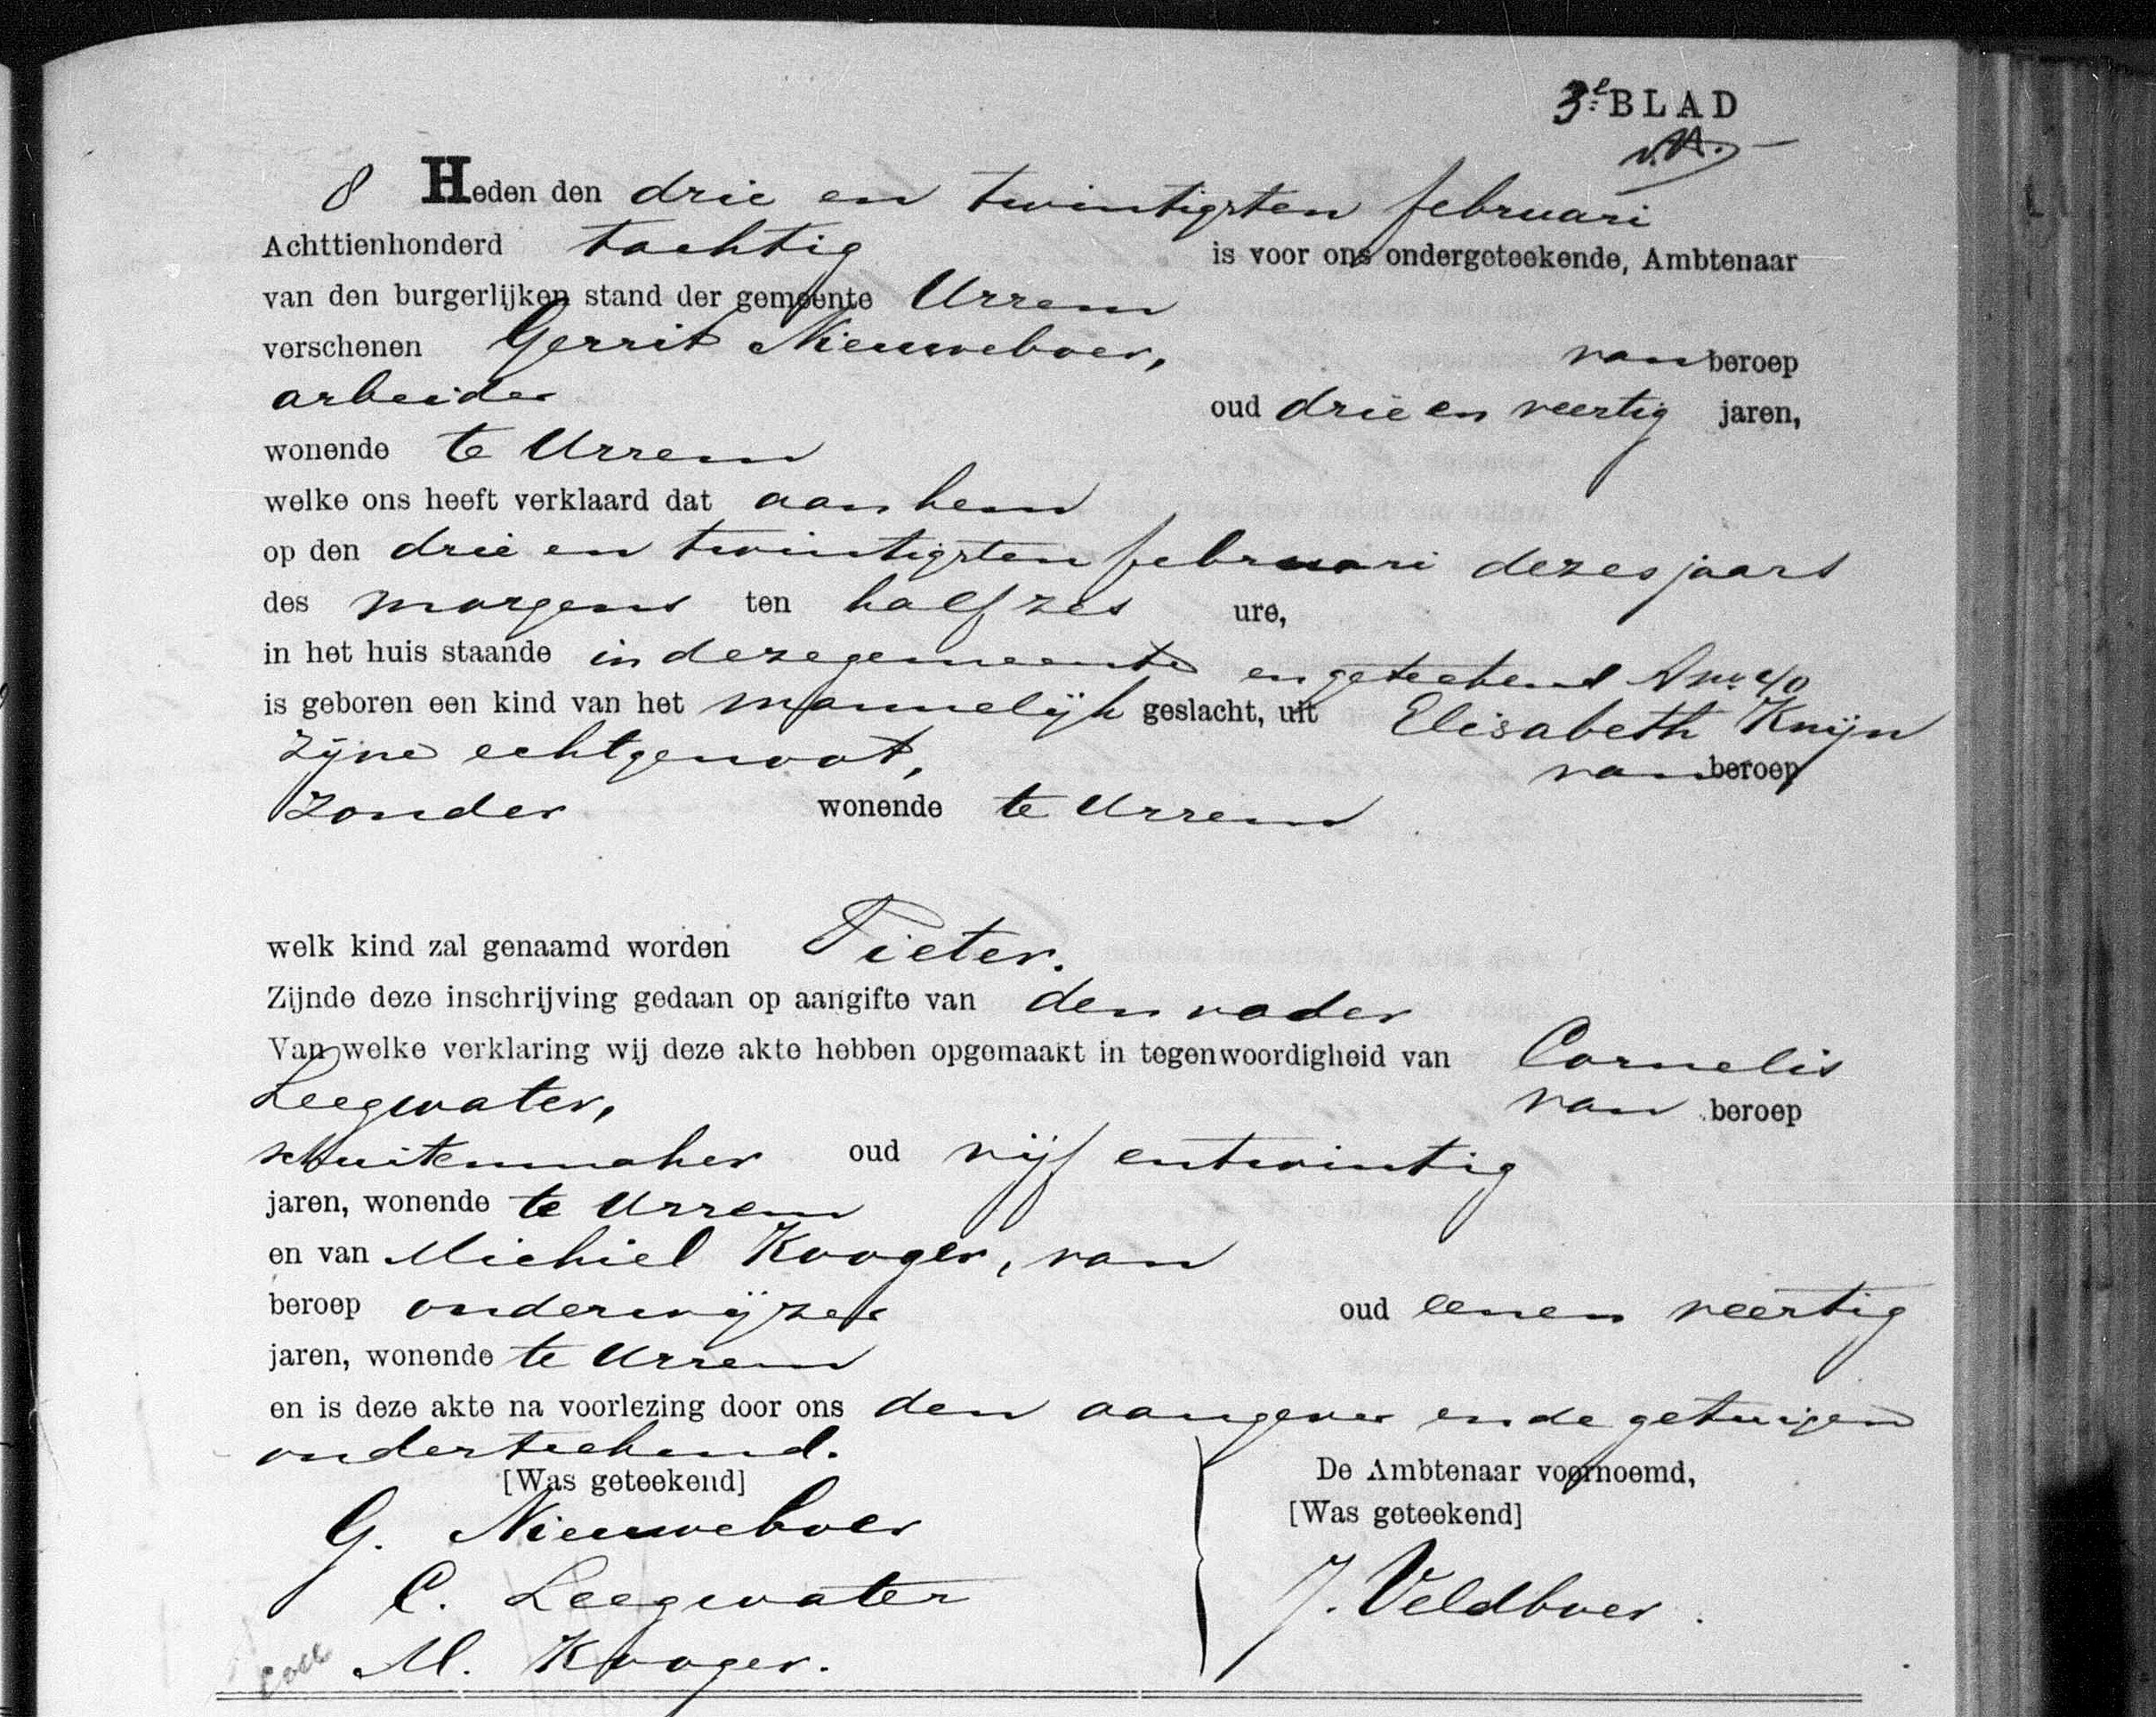 3e BLAD
8 Heden den drie en twintigsten februari
Achttienhonderd tachtig is voor ons ondergeteekende, Ambtenaar
van den burgerlijken stand der gemeente Urrem
verschenen Gerrit Nieuweboer, van beroep
arbeider oud drie en veertig jaren,
wonende te Urrem
welke ons heeft verklaard dat aan hem
op den drie en twintigsten februari dezes jaars
des morgens ten half zes ure,
in het huis staande in deze gemeente en geteekend A no. 40
is geboren een kind van het mannelijk geslacht, uit Elisabeth Knijn
zijne echtgenoot, van beroep
zonder wonende te Urrem
welk kind zal genaamd worden Pieter.
Zijnde deze inschrijving gedaan op aangifte van den vader
Van welke verklaring wij deze akte hebben opgemaakt in tegenwoordigheid van Cornelis
Leegwater, van beroep
schuitenmaker oud vijf en twintig
jaren, wonende te Urrem
en van Michiel Kooger, van
beroep onderwijzer oud een en veertig
jaren, wonende te Urrem
en is deze akte na voorlezing door ons den aangever en de getuigen
onderteekend.
[Was geteekend] De Ambtenaar voornoemd,
G. Nieuweboer [Was geteekend]
C. Leegwater J. Veldboer.
M. Kooger.